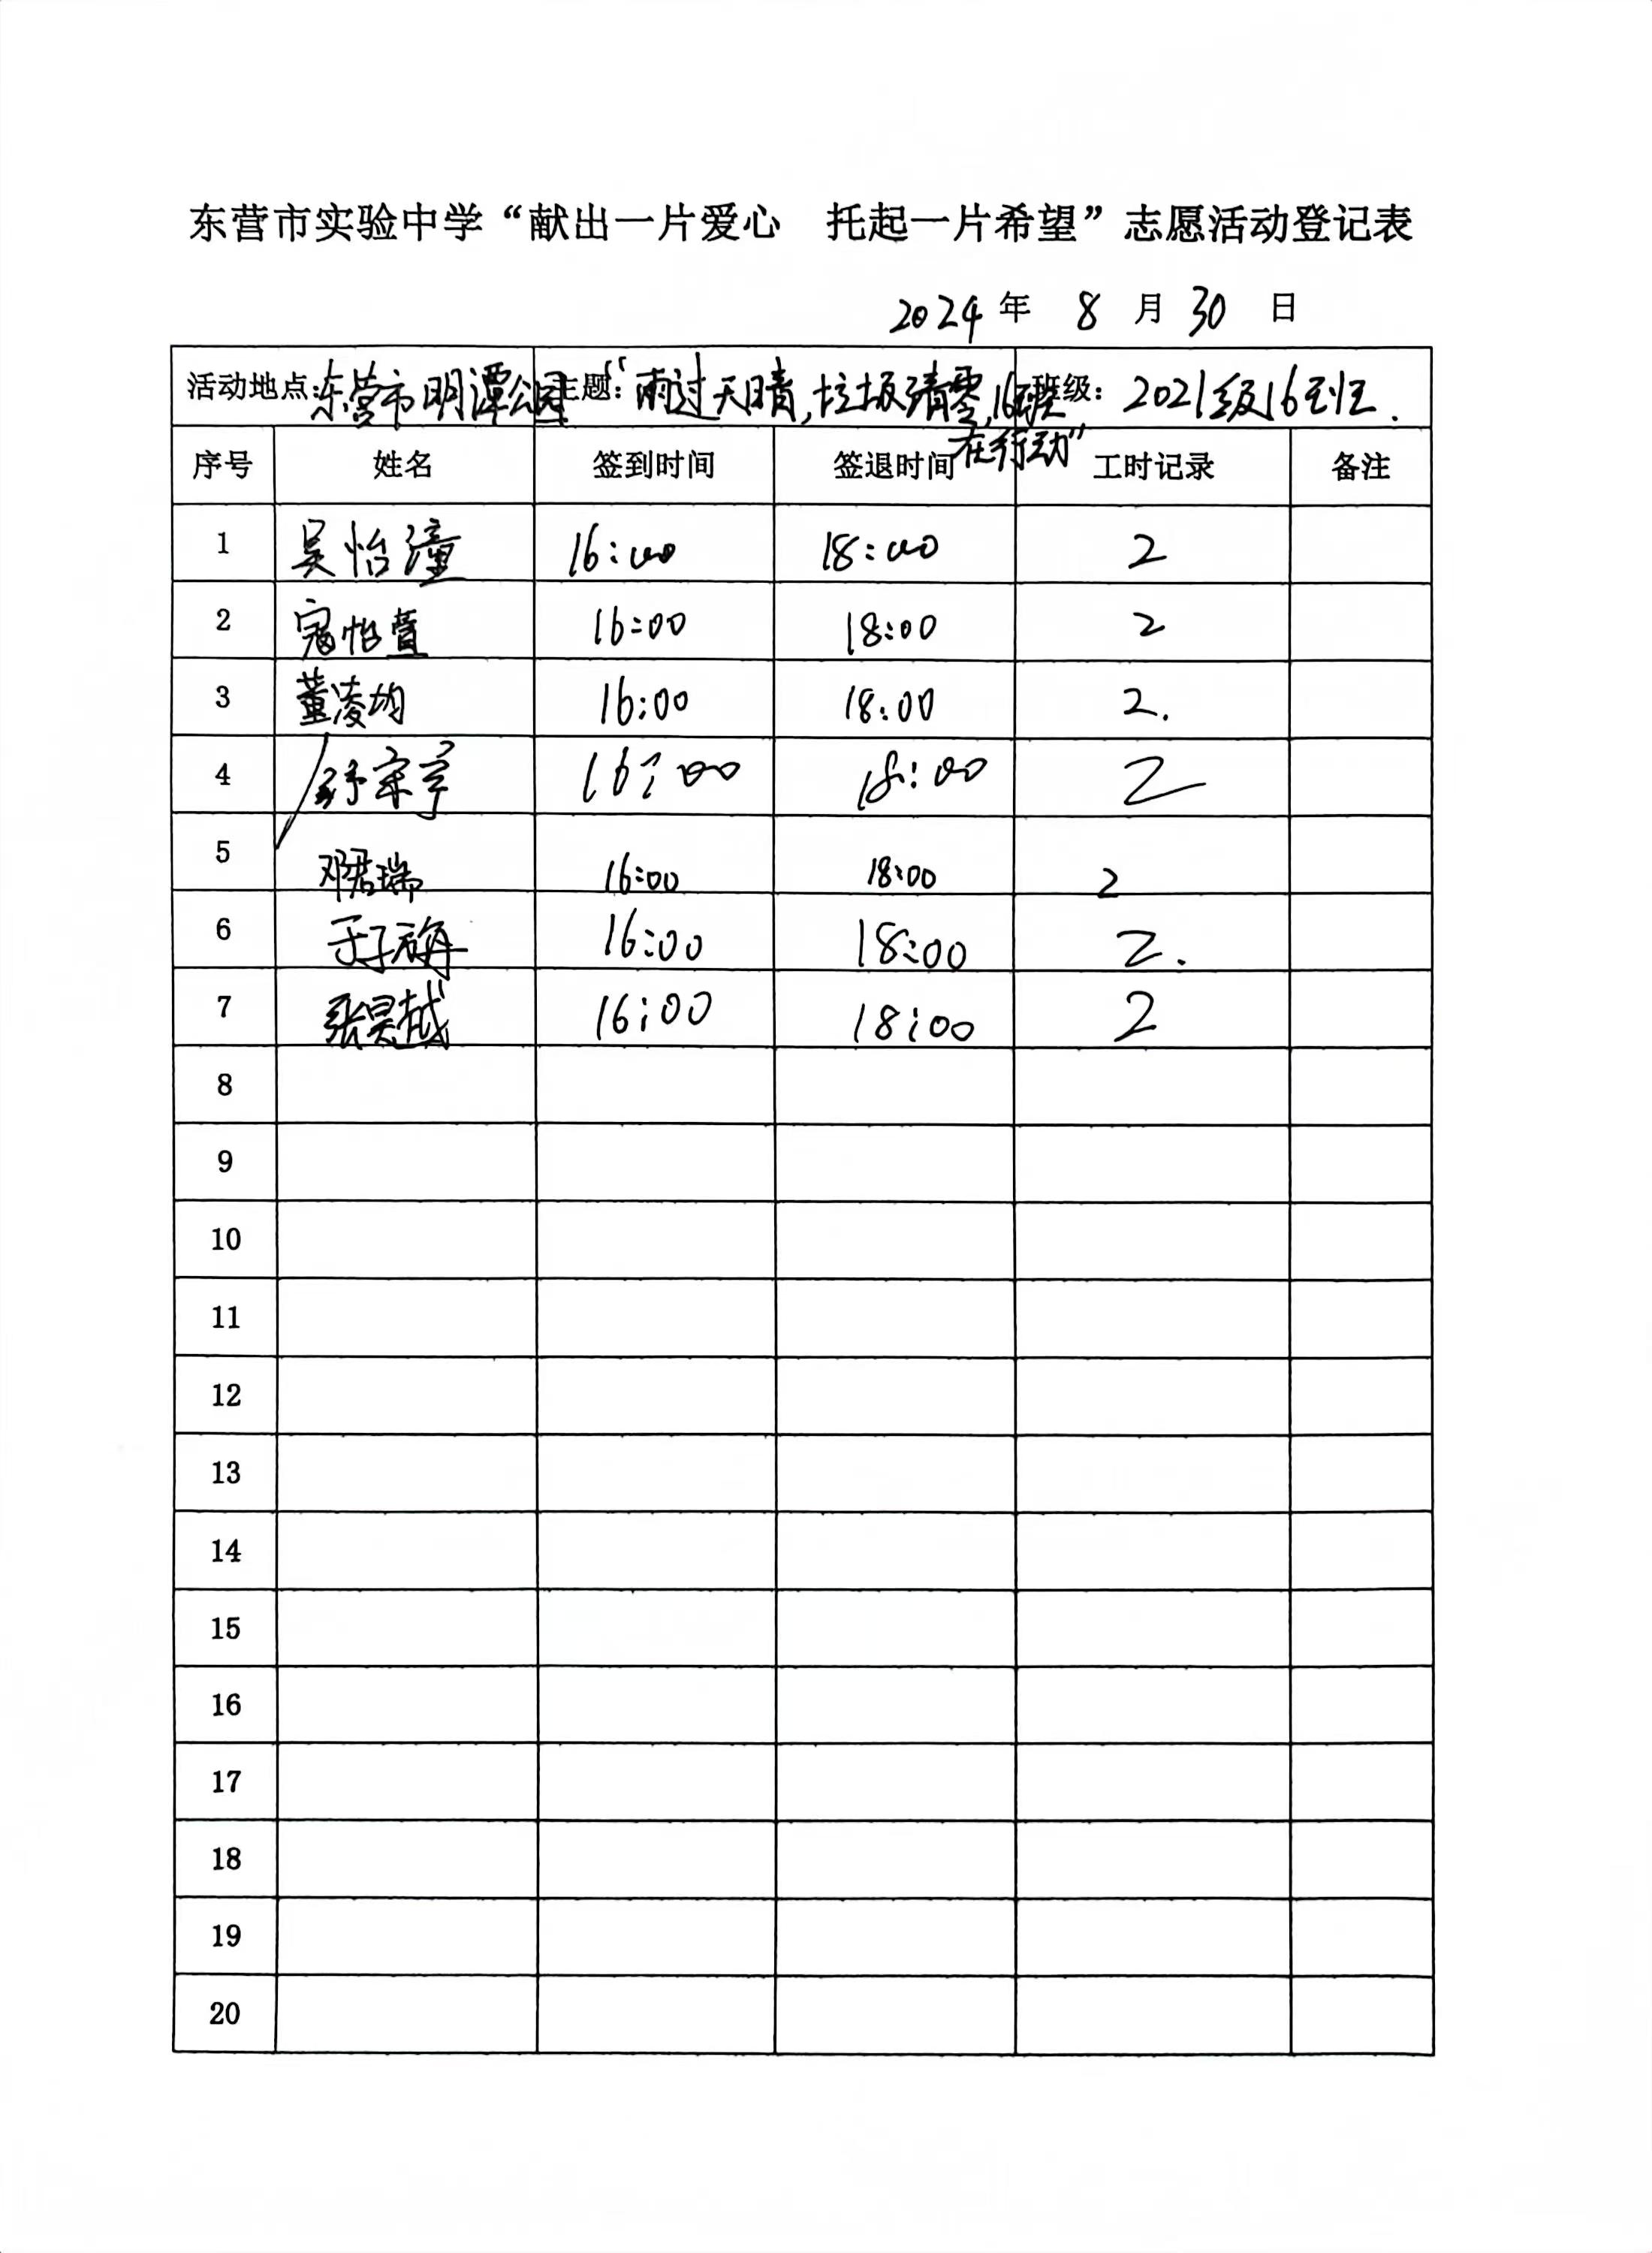 东营市实验中学“献出一片爱心 托起一片希望”志愿活动登记表
2024 年 8 月 30 日
活动地点:东营市明潭公园 主题:“雨过天晴,垃圾清零,16班 在行动” 班级: 2021级16班.
序号 姓名 签到时间 签退时间 工时记录 备注
1 吴怡潼 16:00 18:00 2
2 寇怡萱 16:00 18:00 2
3 董凌均 16:00 18:00 2.
4 宇 16:00 18:00 2
5 邓君瑞 16:00 18:00 2
6 于子 16:00 18:00 2.
7 张昊越 16:00 18:00 2
8
9
10
11
12
13
14
15
16
17
18
19
20